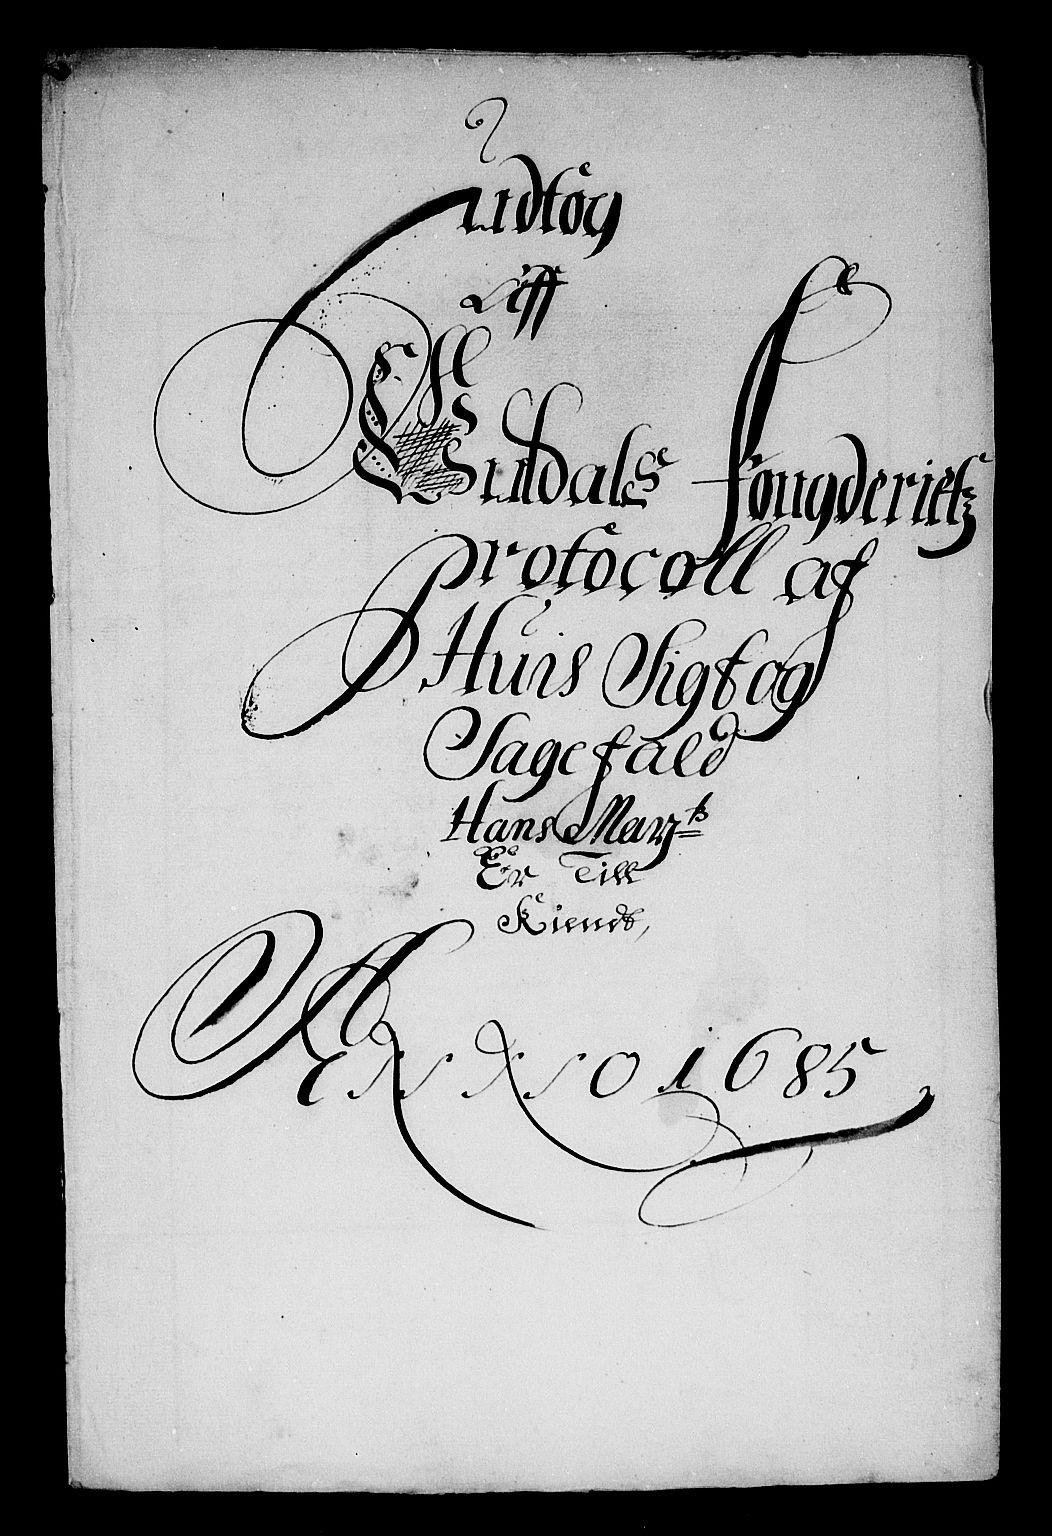 Udtög
Aff
Gudals fougderietz
Protocoll af
Huis Sigt og
Sagefald
Hans May.ts
Er Till
Kiendt,
ANNO 1685